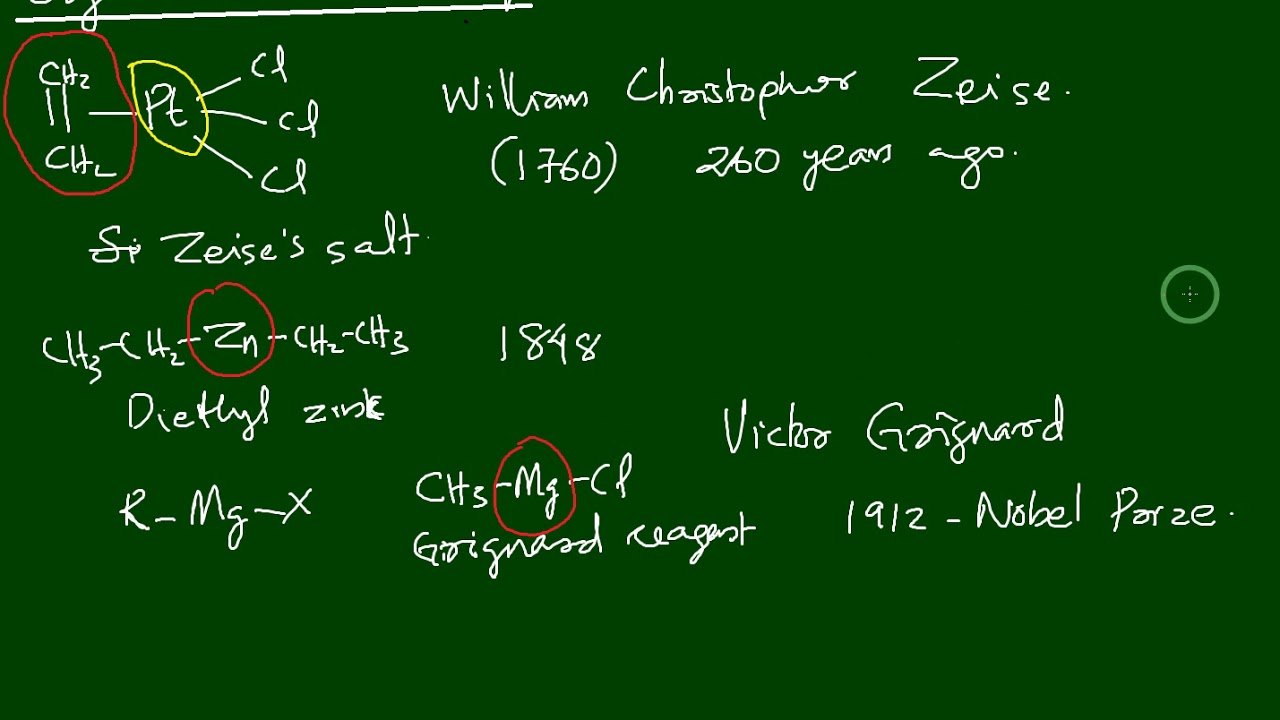 CH2 || CH2 — Pt Cl Cl Cl
William Christopher Zeise.
(1760) 260 years ago.
Si Zeise's salt.
CH3-CH2-Zn-CH2-CH3 1848
Diethyl zink
Victor Grignard
R-Mg-X CH3-Mg-Cl
Grignard reagent
1912 - Nobel Prize.